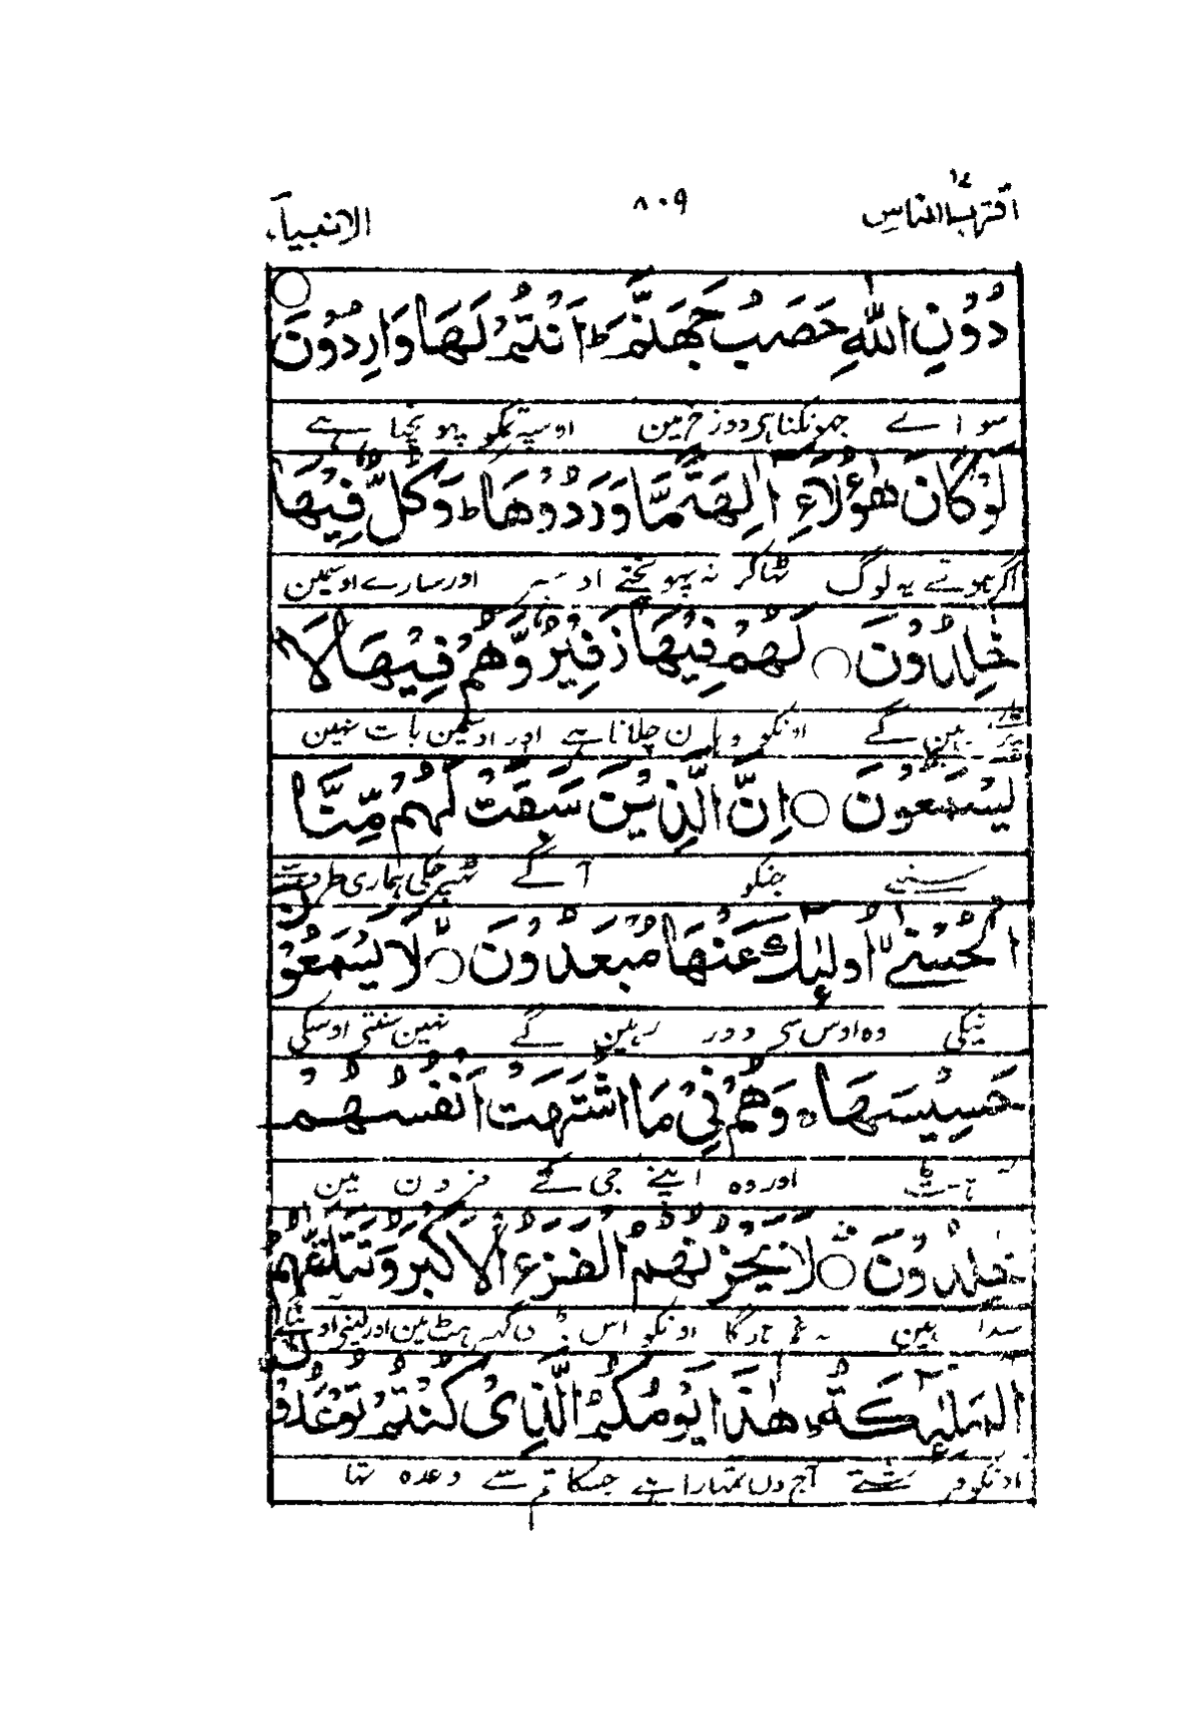 اقترب للناس ١٧
٨٠٩
الانبیآء
دُوۡنِ اللّٰهِ حَصَبُ جَهَنَّمَ ؕ اَنۡتُمۡ لَهَا وَارِدُوۡنَ ○
سواے جھونکنا ہی دوزخ مین اوسپہ تمکو پہونچنا ہے
لَوۡ كَانَ هٰٓؤُلَآءِ اٰلِهَةً مَّا وَرَدُوۡهَا ؕ وَكُلٌّ فِيۡهَا
اگر ہوتے یہ لوگ ٹھاکر نہ پہونچتے اوسپر اور سارے اوسمین
خٰلِدُوۡنَ ○ لَهُمۡ فِيۡهَا زَفِيۡرٌ وَّهُمۡ فِيۡهَا لَا
رہین گے اونکو وہان چلانا ہے اور اوسمین بات نہین
يَسۡمَعُوۡنَ ○ اِنَّ الَّذِيۡنَ سَبَقَتۡ لَهُمۡ مِّنَّا
سنتے جنکو آگے ٹہیر چکی ہماری طرف سے
الۡحُسۡنٰٓى ۙ اُولٰٓئِكَ عَنۡهَا مُبۡعَدُوۡنَ ○ لَا يَسۡمَعُوۡنَ
نیکی وہ اوس سی دور رہین گے نہین سنتی اوسکی
حَسِيۡسَهَا ۚ وَهُمۡ فِىۡ مَا اشۡتَهَتۡ اَنۡفُسُهُمۡ
آہٹ اور وہ اپنے جی کے مزون مین
خٰلِدُوۡنَ ○ لَا يَحۡزُنُهُمُ الۡفَزَعُ الۡاَكۡبَرُ وَتَتَلَقّٰٮهُمُ
سدا ہین نہ غم ہوگا اونکو اس بڑی گھبراہٹ مین اور لینی آوینگے
الۡمَلٰٓئِكَةُ ؕ هٰذَا يَوۡمُكُمُ الَّذِىۡ كُنۡتُمۡ تُوۡعَدُوۡنَ
اونکو فرشتے آج دن تمہارا ہے جسکا تم سے وعدہ تھا